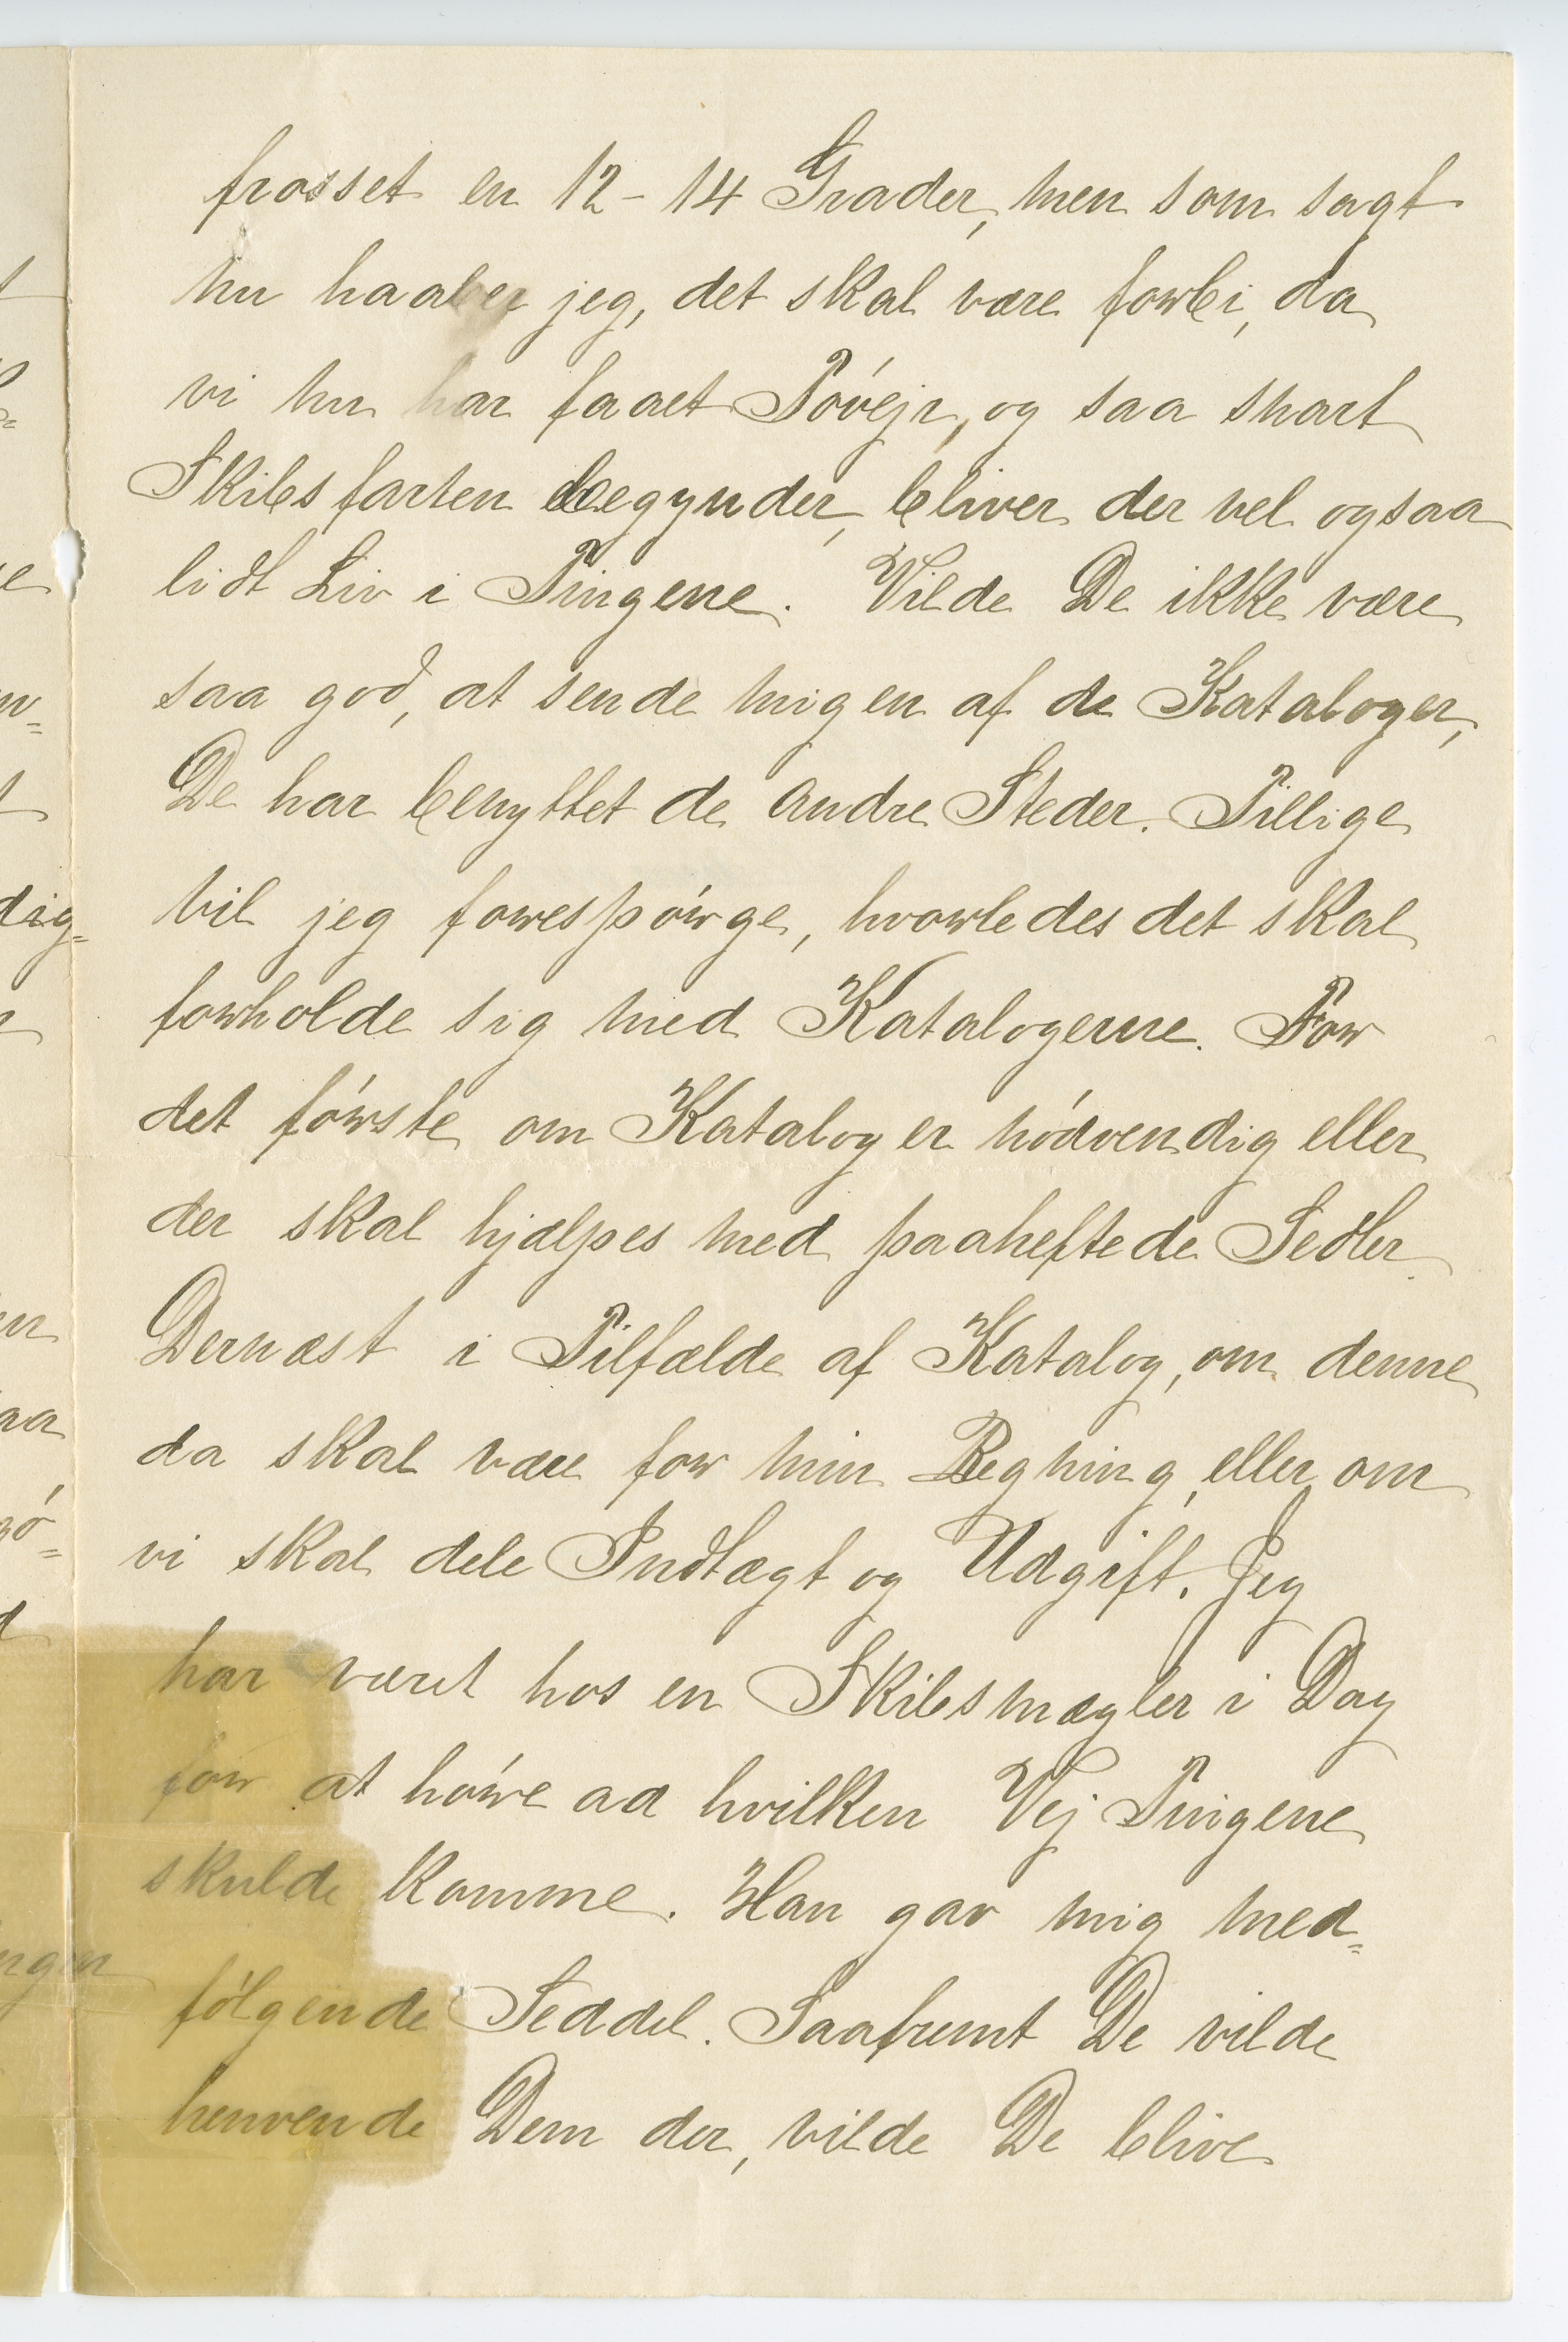 frosset en 12-14 Grader, men som sagt
nu haaber jeg, det skal være forbi, da
vi nu har faaet Tóvejr, og saa snart
Skibsfarten begynder, bliver der vel ogsaa
lidt Liv i Tingene. Vilde De ikke være
saa god, at sende mig en af de Kataloger,
De har benyttet de andre Steder. Tillige
vil jeg forespórge, hvorledes det skal
forholde sig med Katalogerne. For
det fórste om Katalog er nódvendig eller
der skal hjælpes med paaheftede Sedler.
Dernæst i Tilfælde af Katalog, om denne
da skal være for min Regning, eller om
vi skal dele Indtægt og Udgift. Jeg
har været hos en Skibsmægler i Dag
for at hóre ad hvilken Vej Tingene
skulde komme. Han gav mig med=
fólgende Seddel. Saafremt De vilde
henvende Dem der, vilde De blive